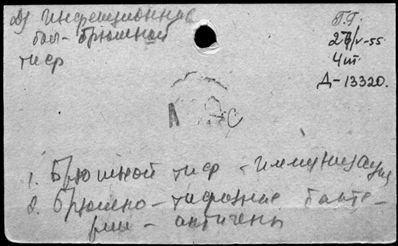 2) Инфекционная
бол- брюшной
тиф
Г.Г.
28/V-55
4 шт.
Д-13320.
1. Брюшной тиф - иммунизация
2. Брюшно-тифозные бакте-
рии - антигены